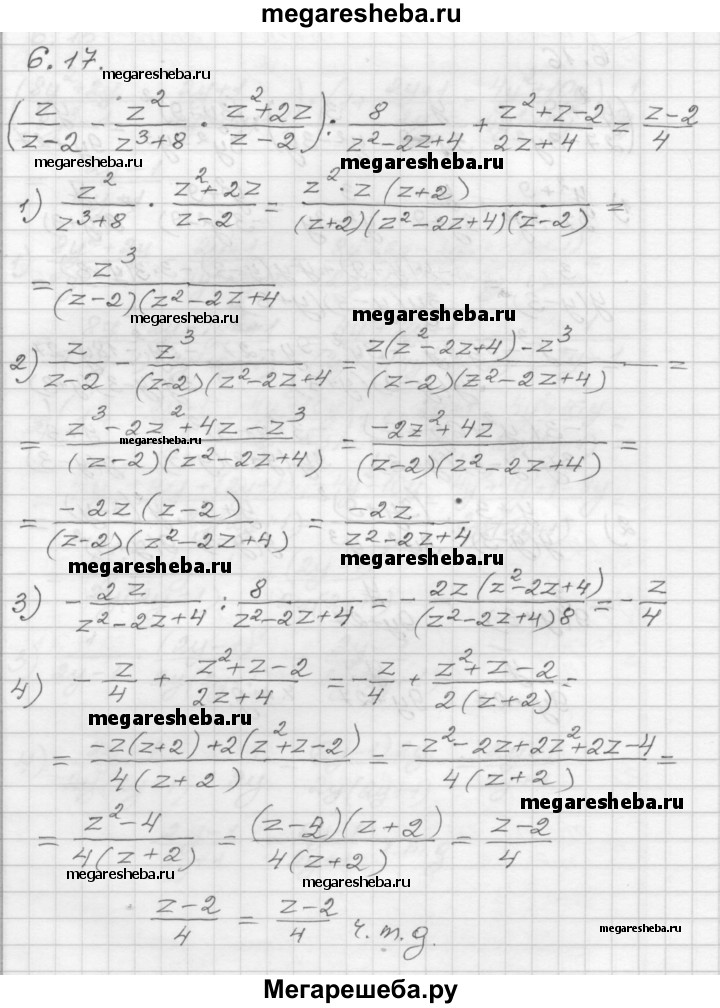 megaresheba.ru
6.17.
megaresheba.ru
(z/(z-2) - z²/(z³+8) · (z²+2z)/(z-2)) : 8/(z²-2z+4) + (z²+z-2)/(2z+4) = (z-2)/4
megaresheba.ru megaresheba.ru
1) z²/(z³+8) · (z²+2z)/(z-2) = (z²·z(z+2))/((z+2)(z²-2z+4)(z-2)) =
= z³/((z-2)(z²-2z+4
megaresheba.ru megaresheba.ru
2) z/(z-2) - z³/((z-2)(z²-2z+4 = (z(z²-2z+4)-z³)/((z-2)(z²-2z+4)) =
= (z³-2z²+4z-z³)/((z-2)(z²-2z+4)) = (-2z²+4z)/((z-2)(z²-2z+4)) =
megaresheba.ru
= (-2z(z-2))/((z-2)(z²-2z+4)) = (-2z)/(z²-2z+4)
megaresheba.ru megaresheba.ru
3) - 2z/(z²-2z+4) : 8/(z²-2z+4) = - (2z(z²-2z+4))/((z²-2z+4)8) = - z/4
4) - z/4 + (z²+z-2)/(2z+4) = - z/4 + (z²+z-2)/(2(z+2)) =
megaresheba.ru
= (-z(z+2)+2(z²+z-2))/(4(z+2)) = (-z²-2z+2z²+2z-4)/(4(z+2)) =
megaresheba.ru
= (z²-4)/(4(z+2)) = ((z-2)(z+2))/(4(z+2)) = (z-2)/4
megaresheba.ru megaresheba.ru
(z-2)/4 = (z-2)/4 ч.т.д.
megaresheba.ru
Мегарешеба.ру